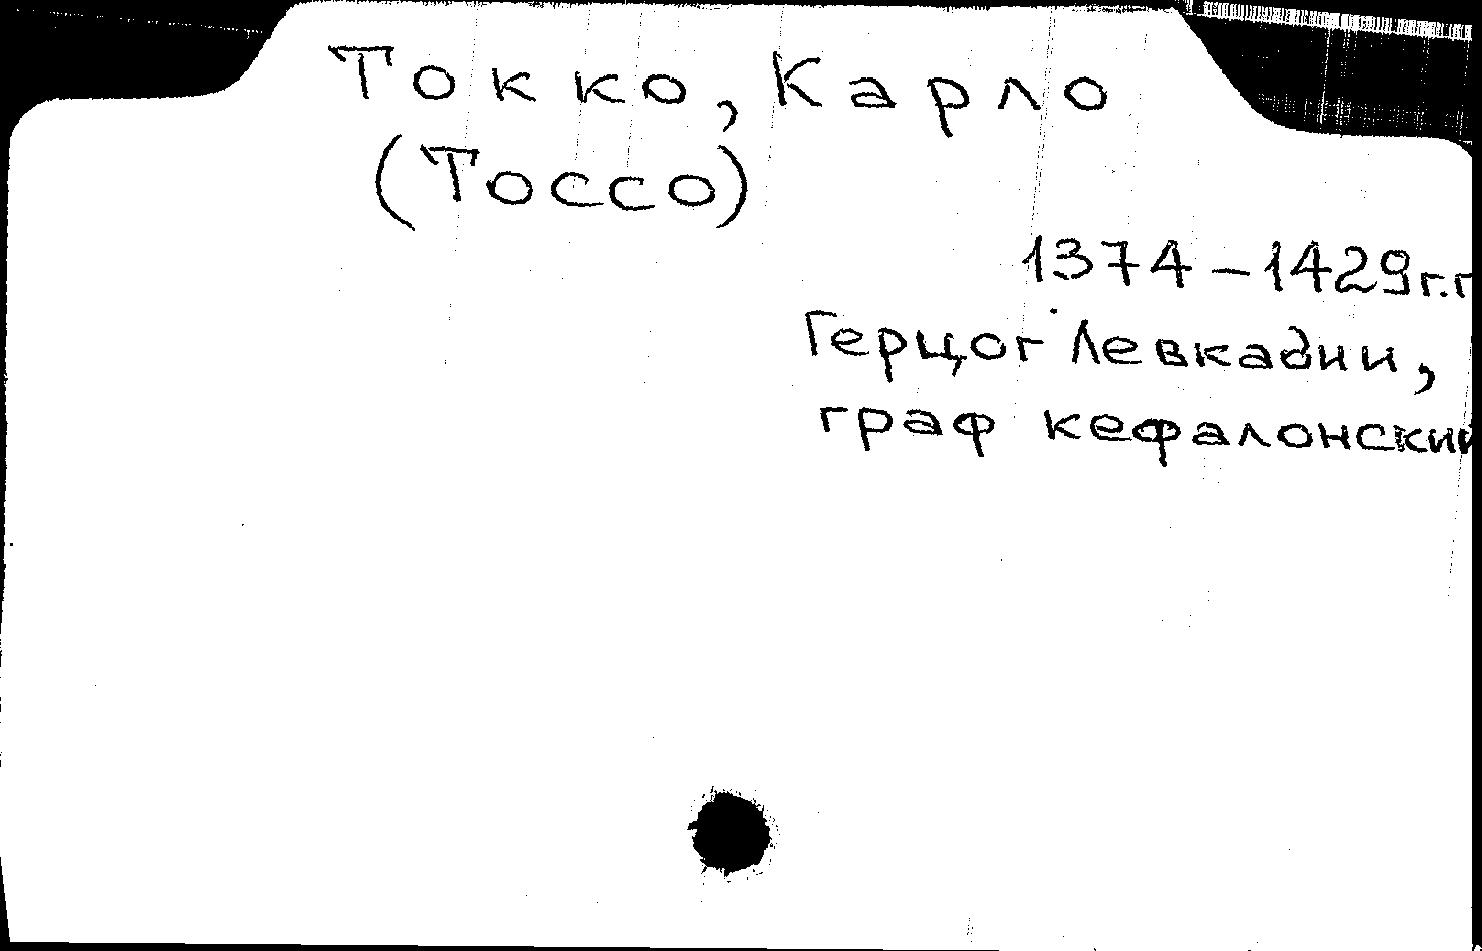 Токко, Карло
(Тоссо)
1374-1429г.г
Герцог Левкадии,
граф кефалонский